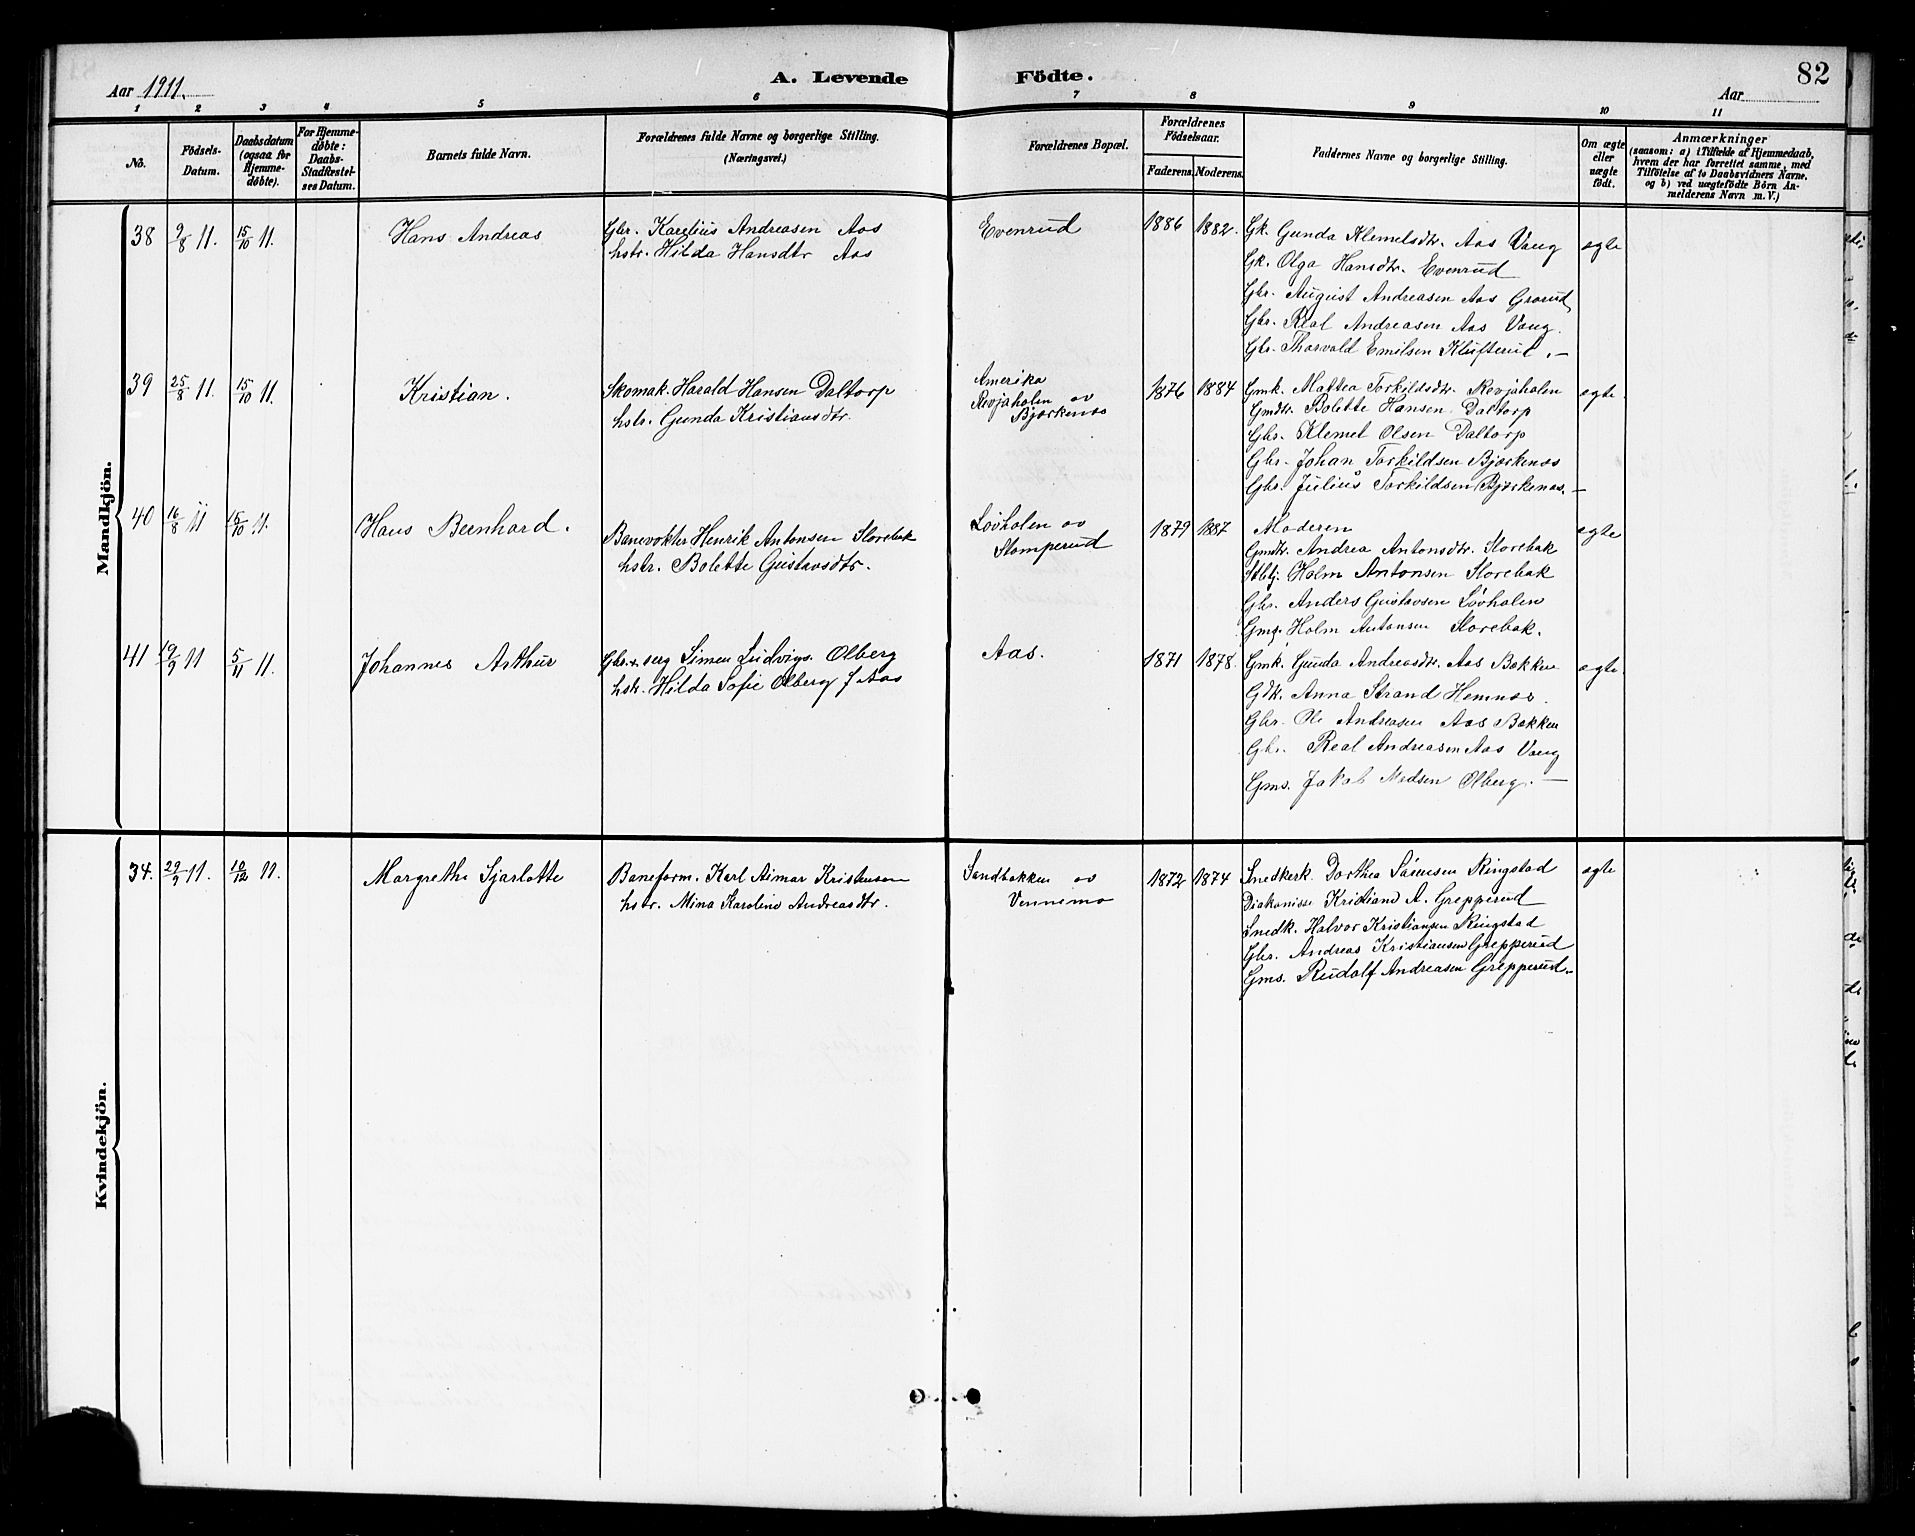 Aar 1911.
A. Levende Födte.
82
Aar
1 2 3 4 5 6 7 8 9 10 11
No.
Födsels-Datum.
Daabsdatum (ogsaa for Hjemme-döbte).
For Hjemme-döbte: Daabs-Stadfæstel-ses Datum.
Barnets fulde Navn.
Forældrenes fulde Navne og borgerlige Stilling.
(Næringsvei.)
Forældrenes Bopæl.
Forældrenes Födselsaar.
Faderens. Moderens.
Faddernes Navne og borgerlige Stilling.
Om ægte eller uægte födt.
Anmærkninger
(saasom: a) i Tilfælde af Hjemmedaab,
hvem der har forrettet samme, med
Tilföielse af to Daabsvidners Navne,
og b) ved uægtefödte Börn An-
melderens Navn m. V.)
Mandkjön.
38 9/8 11. 15/10 11. Hans Andreas
Gbr. Karelius Andreasen Aas
hstr. Hilda Hansdtr Aas
Evenrud
1886 1882.
Gk. Gunda Klemetsdtr. Aas Vang
Gk. Olga Hansdtr. Evenrud
Gbr. August Andreasen Aas Grorud
Gbr. Real Andreasen Aas Vang.
Gbr. Thorvald Emilsen Klufterud.—
ægte
39 25/8 11. 15/10 11. Kristian.
Skomak. Harald Hansen Daltorp
hstr. Gunda Kristiansdtr.
Amerika
Revjaholen av
Bjørkenæs
1876 1884
Gmk. Mattea Torkildsdtr. Revjaholen
Gmdtr. Bolette Hansen Daltorp
Gbr. Klemet Olsen Daltorp
Gbr. Johan Torkildsen Bjørkenæs
Gbr. Julius Torkildsen Bjørkenæs.—
ægte.
40 16/8 11 15/10 11. Hans Bernhard.
Banevokter Henrik Antonsen Storebak
hstr. Bolette Gustavsdtr.
Løvholen av
Stomperud
1879 1887
Moderen
Gmdtr. Andrea Antonsdtr. Storebak
Holm Antonsen Storebak
Gbr. Anders Gustavsen Løvholen
Gmg. Holm Antonsen Storebak.
ægte
41 19/9 11 5/11 11. Johannes Arthur
Gbr. + serg Simen Ludvigs. Olberg
hstr. Hilda Sofie Olberg f. Aas
Aas.
1871 1878.
Gmk. Gunda Andreasdtr. Aas Bakken
Gdk. Anna Strand Hemnæs.
Gbr. Ole Andreasen Aas Bakken
Gbr. Real Andreasen Aas Vang
Gms. Jakob Madsen Olberg.—
ægte.
Kvindekjön.
34. 29/9 11. 10/12 11. Margrethe Sjarlotte
Baneform. Karl Aimar Kristensen
hstr. Mina Karoline Andreasdtr.
Sandbakken av
Vennemo
1872 1874
Snedkerk. Dorthea Sørensen Ringstad
Diakonisse Kristiane A. Grepperud
Snedk. Halvor Kristiansen Ringstad
Gbr. Andreas Kristiansen Grepperud
Gms. Rudolf Andreasen Grepperud.
ægte